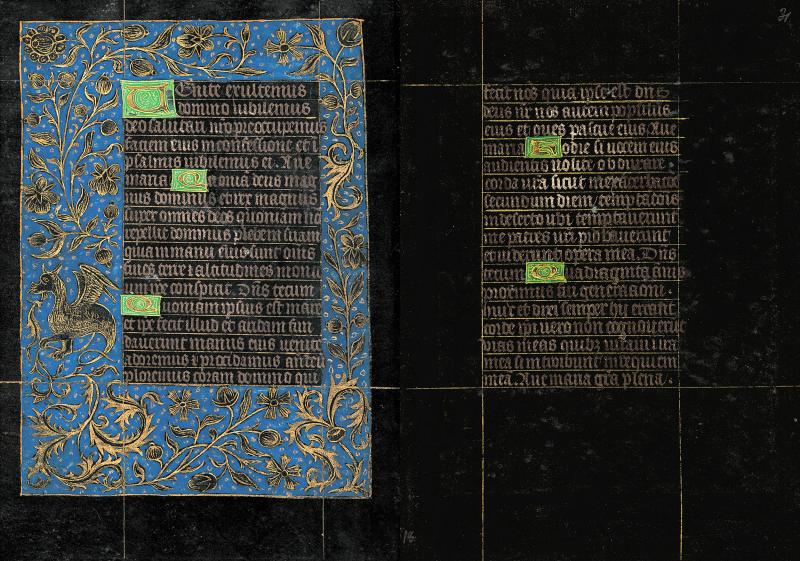 Venite exultemus
domino iubilemus
deo salutari nro preocupemus
faciem eius in confessione et i
psalmis iubilemus ei. Aue
maria Quoniam deus mag
nus dominus et rex magnus
super omnes deos quoniam no
repellit dominus plebem suam
quia in manu eius sunt omes
fines terre et altitudines
ipe conspicit. Dns tecum
Quoniam ipsius est mare
et ipe fecit illud et aridam fun
dauerunt manus eius venite
adoremus et procidamus ante
ploremus coram domino qui
fecit nos quia ipse est dns
deus nr nos autem populus
eius et oues pascue eius. Aue
maria Hodie si uocem eius
audieritis nolite obdurare
corda vra sicut in exacerbacoe
secundum diem temptacois
in deserto ubi temptauerunt
me patres vri probauerunt
et uiderunt opera mea. Dns
tecum Quadraginta annis
proximus fui generacioni
huic et dixi semper hij errant
corde ipi uero non cognouerut
vias meas quibz iuraui in ira
mea si introibunt in requiem
mea. Aue maria gra plena.